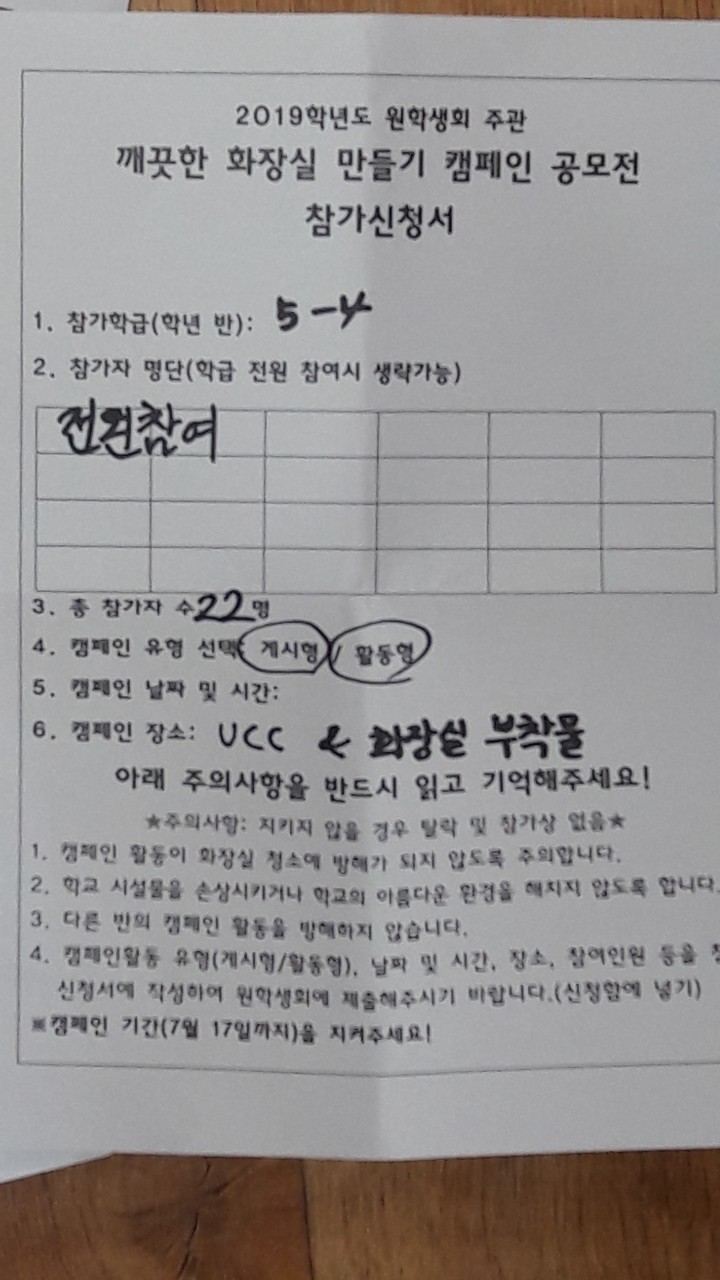 2019학년도 원학생회 주관
깨끗한 화장실 만들기 캠페인 공모전
참가신청서
1. 참가학급(학년 반): 5-4
2. 참가자 명단(학급 전원 참여시 생략가능)
전원참여
3. 총 참가자 수 22명
4. 캠페인 유형 선택: 게시형 / 활동형
5. 캠페인 날짜 및 시간:
6. 캠페인 장소: UCC & 화장실 부착물
아래 주의사항을 반드시 읽고 기억해주세요!
★주의사항: 지키지 않을 경우 탈락 및 참가상 없음★
1. 캠페인 활동이 화장실 청소에 방해가 되지 않도록 주의합니다.
2. 학교 시설물을 손상시키거나 학교의 아름다운 환경을 해치지 않도록 합니다.
3. 다른 반의 캠페인 활동을 방해하지 않습니다.
4. 캠페인활동 유형(게시형/활동형), 날짜 및 시간, 장소, 참여인원 등을
신청서에 작성하여 원학생회에 제출해주시기 바랍니다.(신청함에 넣기)
※캠페인 기간(7월 17일까지)을 지켜주세요!